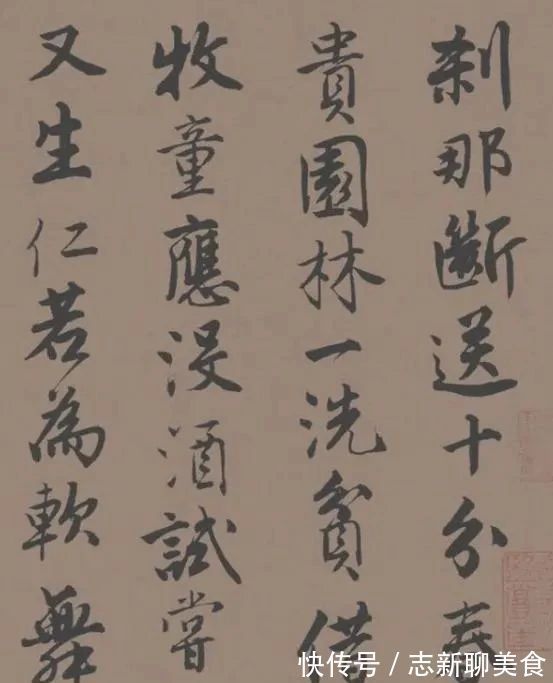 刹那斷送十分春
貴園林一洗貧借
牧童應没酒試嘗
又生仁若為軟舞
快传号 / 志新聊美食